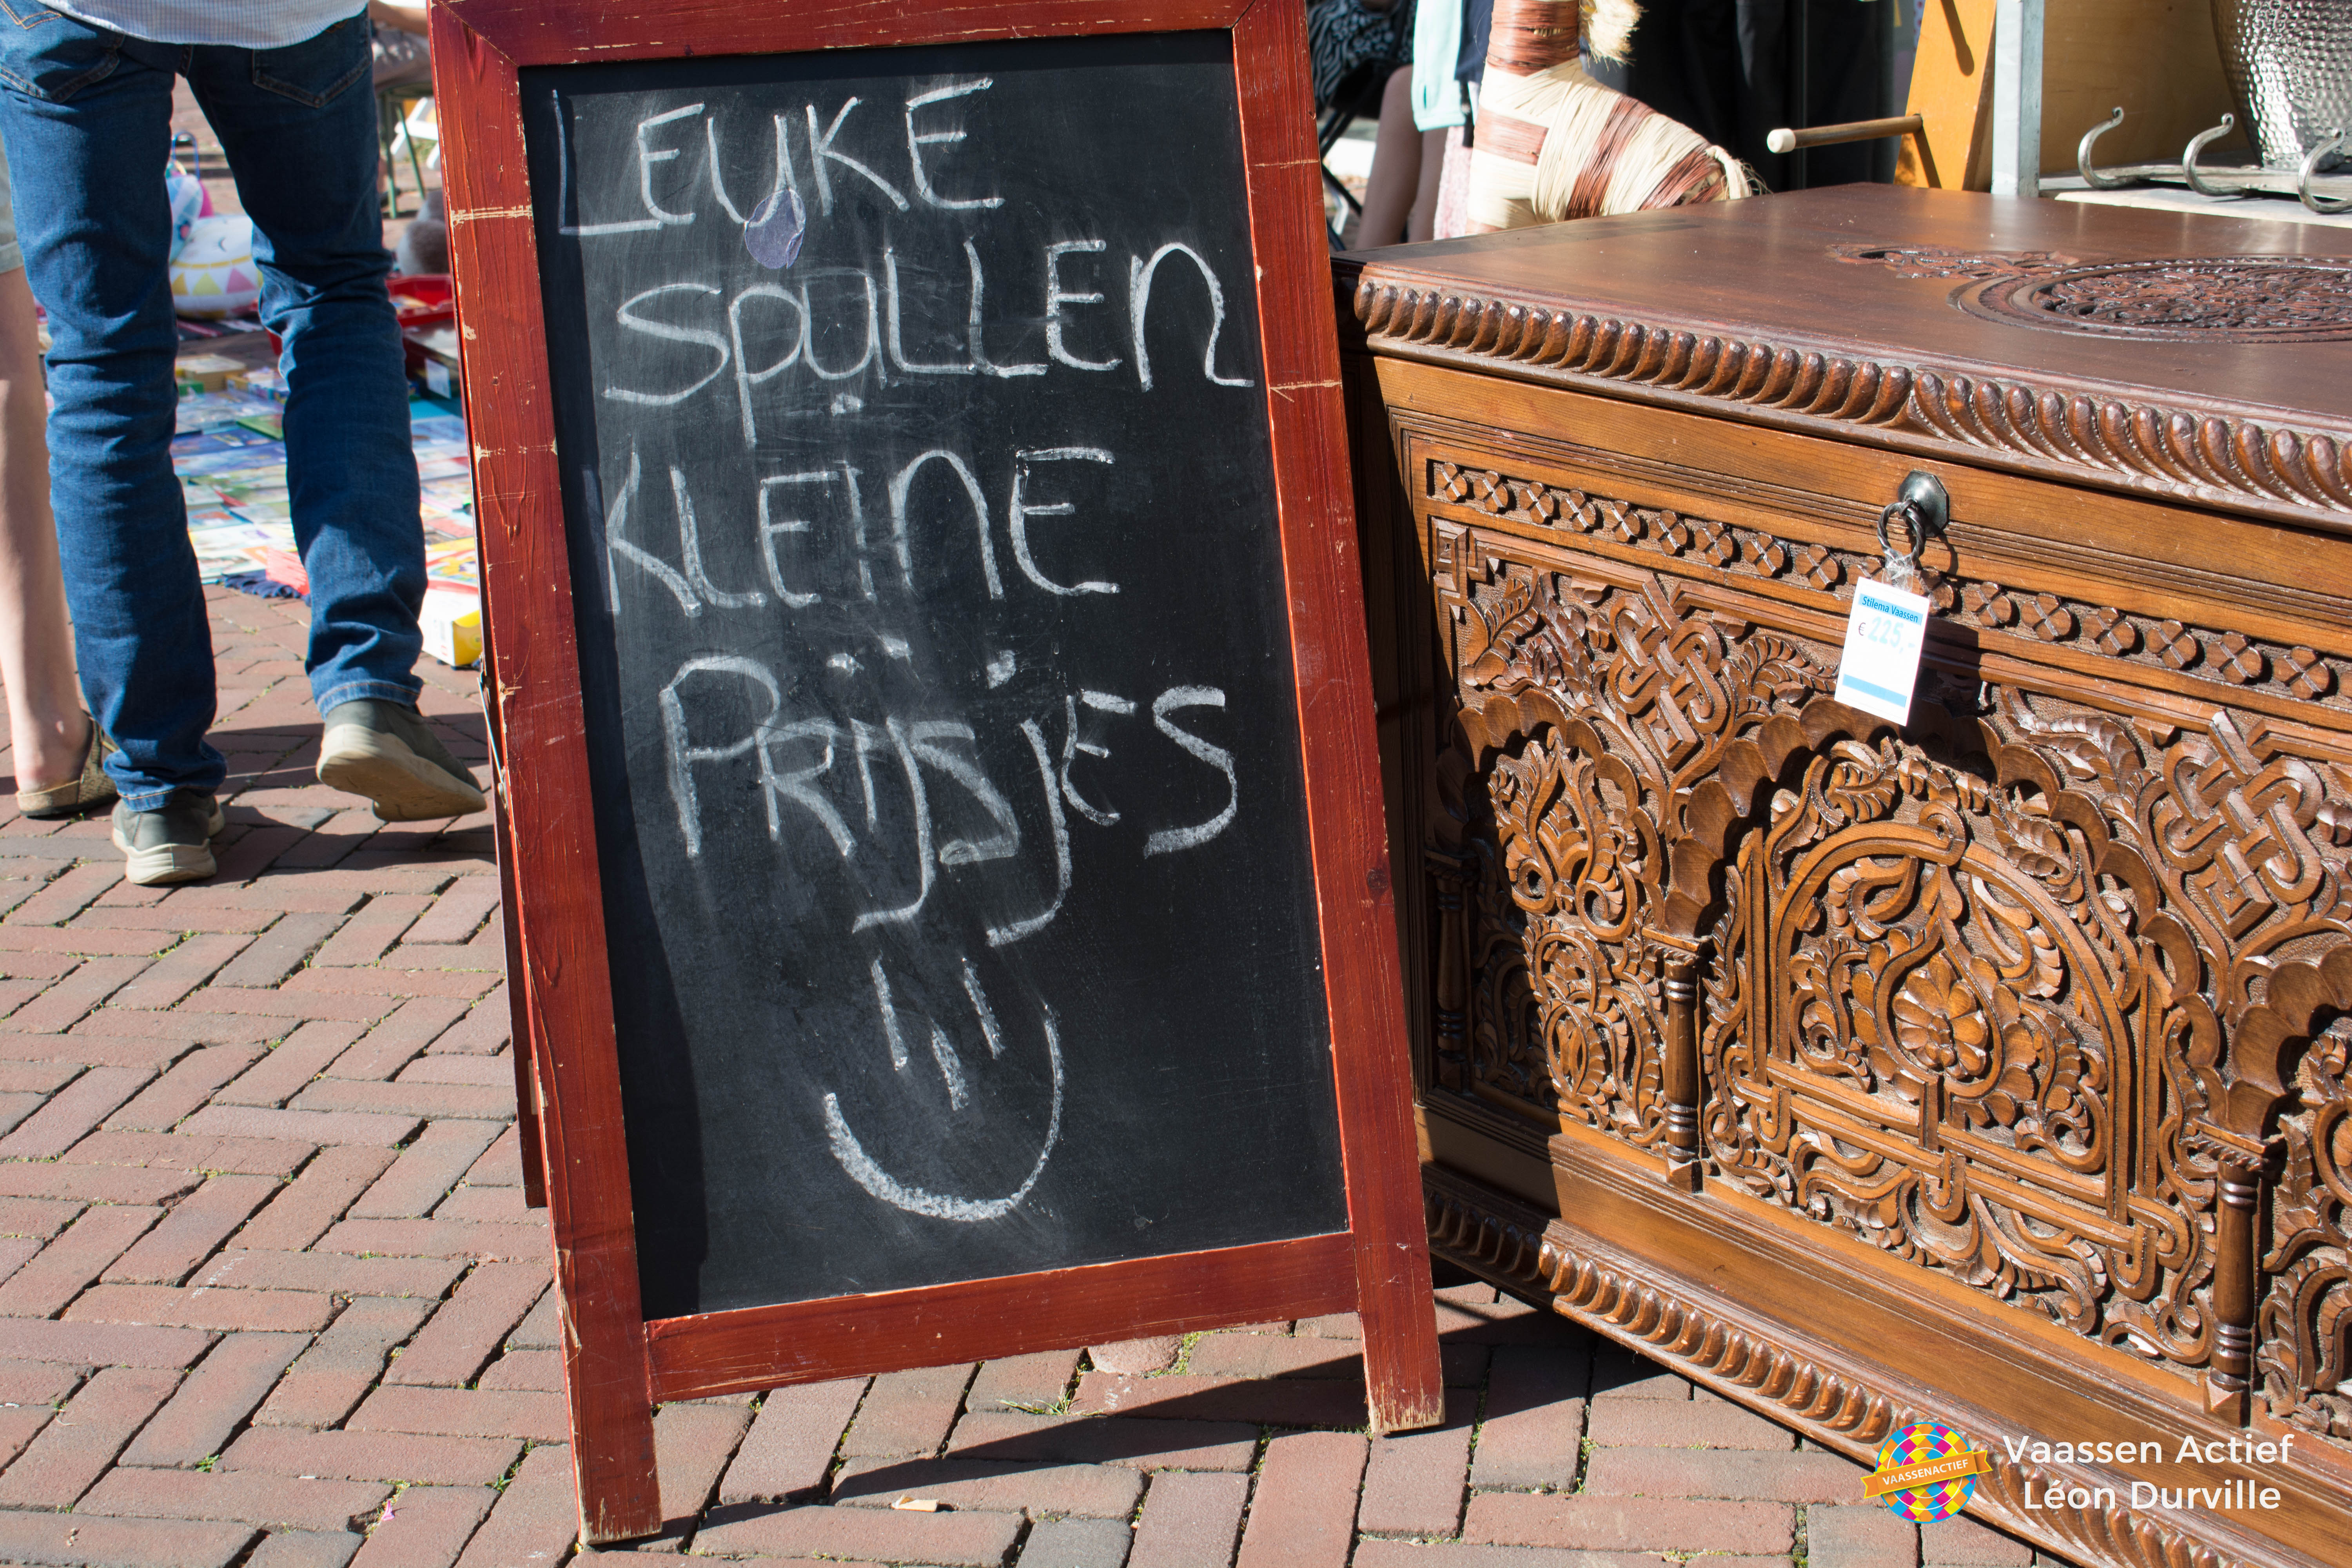 LEUKE
SPULLEN
KLEINE
PRIJSJES
Stilema Vaassen
€ 225,-
VAASSENACTIEF
Vaassen Actief
Léon Durville